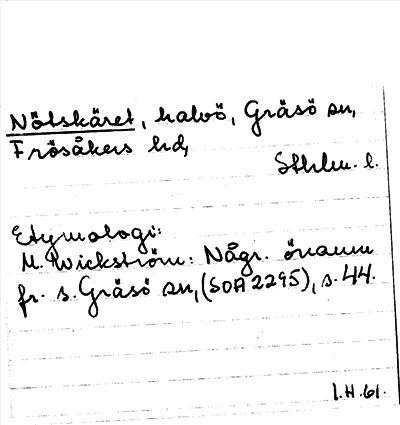 Nötskäret, halvö, Gräsö sn,
Frösåkers hd,
Sthlm. l.
Etymologi:
M. Wickström: Någr. önamn
fr. s. Gräsö sn, (SOA 2295), s. 44.
I.H.61.